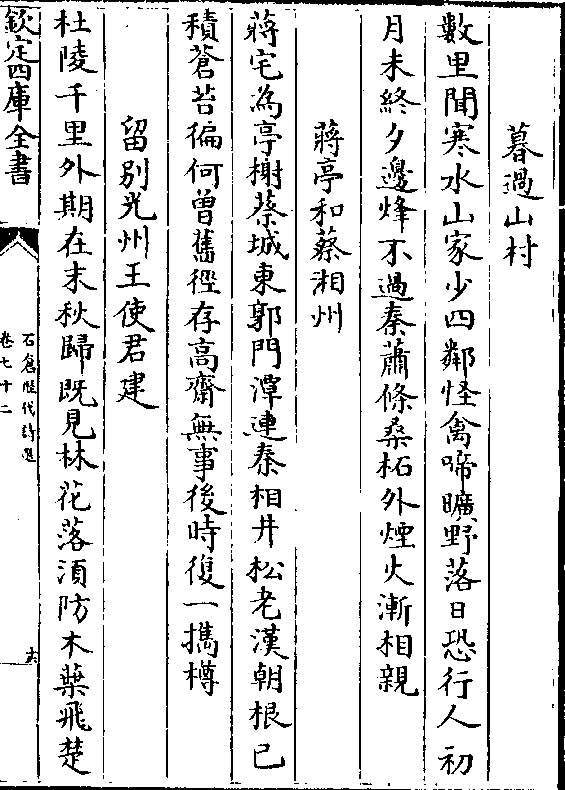 暮過山村
數里聞寒水山家少四鄰怪禽啼曠野落日恐行人初
月未終夕邊烽不過秦蕭條桑柘外煙火漸相親
蔣亭和蔡湘州
蔣宅為亭榭蔡城東郭門潭連秦相井松老漢朝根已
積蒼苔徧何曾舊徑存高齋無事後時復一擕樽
留別光州王使君建
杜陵千里外期在末秋歸既見林花落湏防木葉飛楚
欽定四庫全書
石倉歷代詩選
卷七十二
六